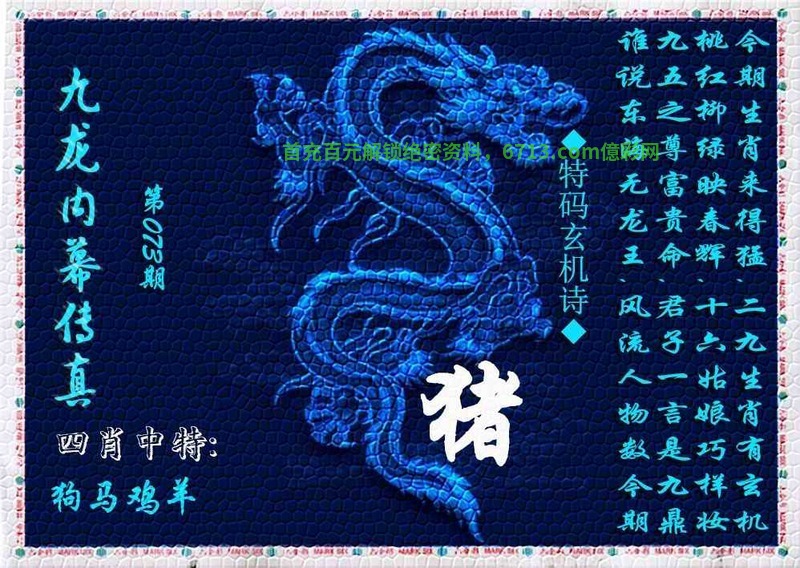 九龙内幕传真
第073期
四肖中特:
狗马鸡羊
首充百元解锁绝密资料,6713.com億彩网
◆特码玄机诗◆
猪
今期生肖来得猛、二九生肖有玄机
桃红柳绿映春辉、十六姑娘巧样妆
九五之尊富贵命、君子一言是九鼎
谁说东海无龙王、风流人物数今期